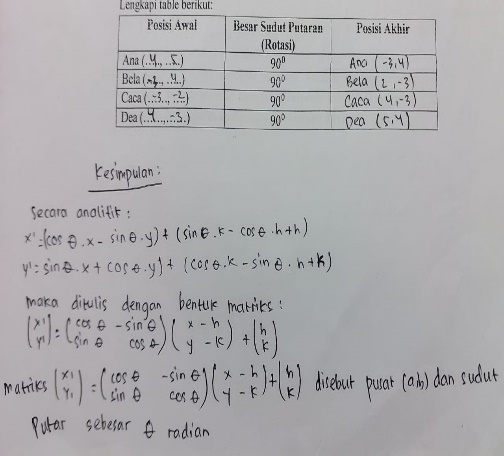 Lengkapi table berikut:
Posisi Awal | Besar Sudut Putaran (Rotasi) | Posisi Akhir
Ana (..4.., ..5..) | 90⁰ | Ana (-3,4)
Bela (.., ..4..) | 90⁰ | Bela (2,-3)
Caca (..-3.., ..-2..) | 90⁰ | Caca (4,-3)
Dea (..4..,..-3..) | 90⁰ | Dea (5,4)
Kesimpulan:
Secara analitik:
x'=(cos θ.x - sin θ.y) + (sin θ.k - cos θ.h+h)
y'= sin θ.x + cos θ.y) + (cos θ.k - sin θ.h+k)
maka ditulis dengan bentuk matriks:
(x' y') = (cos θ -sin θ sin θ cos θ) (x - h y - k) + (h k)
matriks (x' y') = (cos θ -sin θ sin θ cos θ) (x - h y - k) + (h k) disebut pusat (a,b) dan sudut
Putar sebesar θ radian